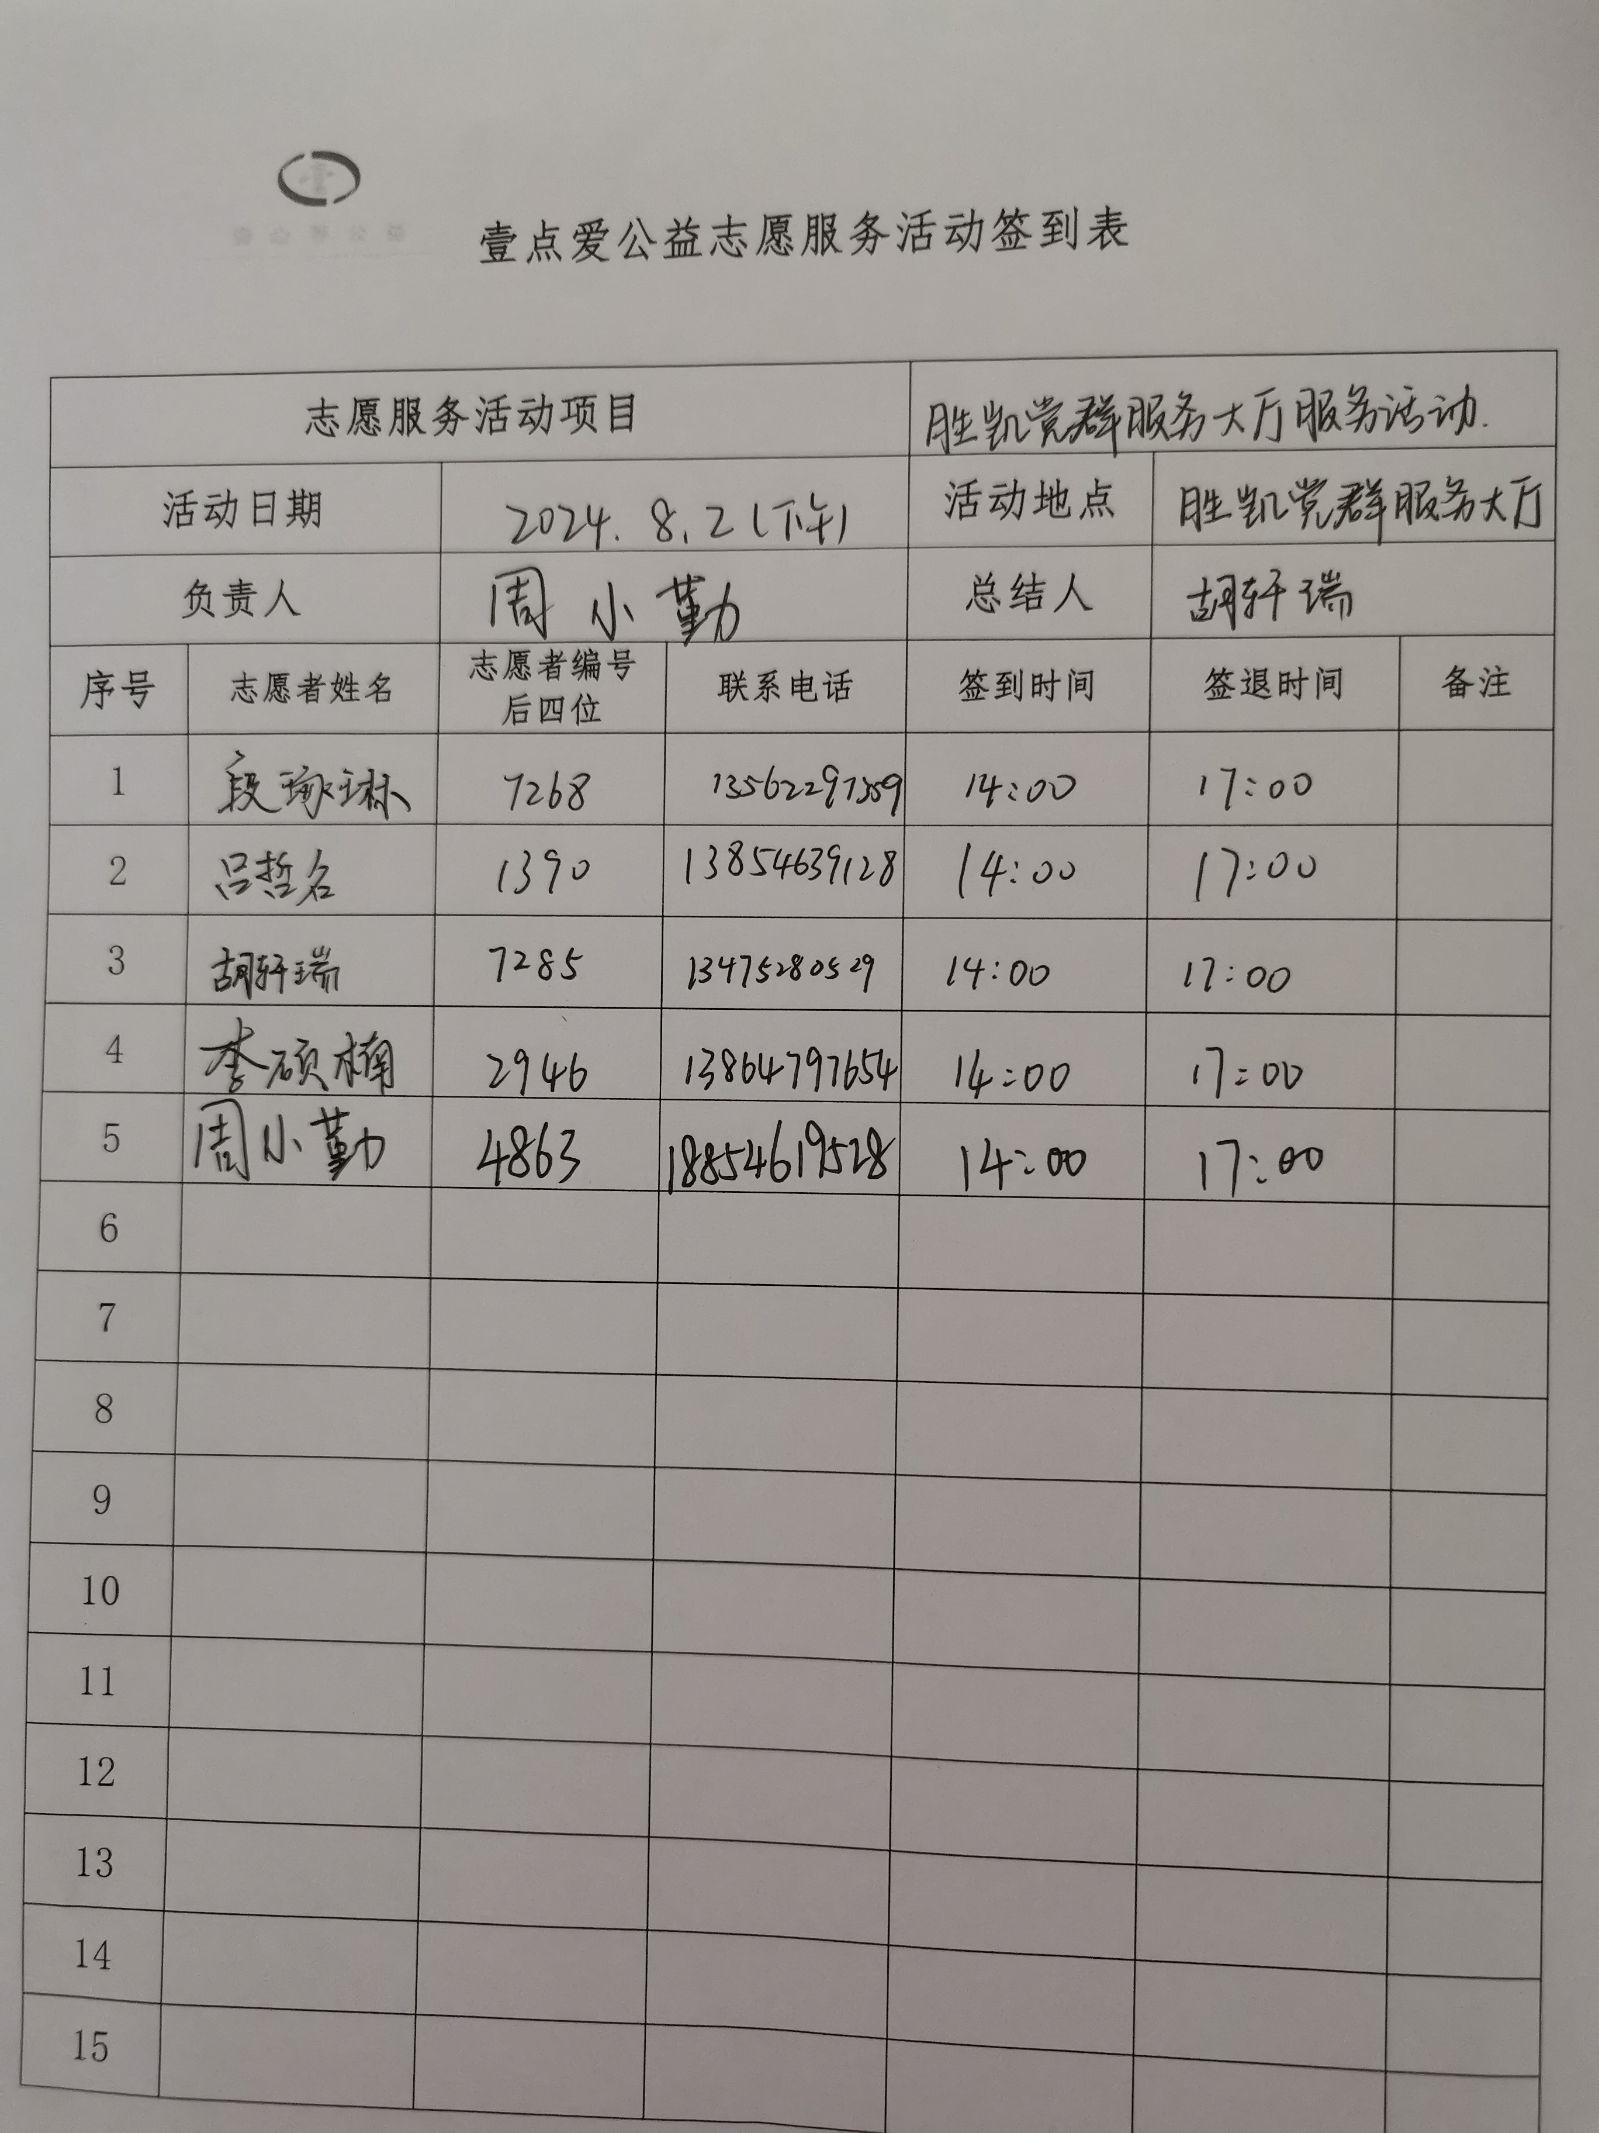 壹点爱公益志愿服务活动签到表
志愿服务活动项目 胜凯党群服务大厅服务活动.
活动日期 2024.8.2(下午) 活动地点 胜凯党群服务大厅
负责人 周小勤 总结人 胡轩瑞
序号 志愿者姓名 志愿者编号后四位 联系电话 签到时间 签退时间 备注
1 段琢琳 7268 13562297359 14:00 17:00
2 吕哲名 1390 13854639128 14:00 17:00
3 胡轩瑞 7285 13475280529 14:00 17:00
4 李硕楠 2946 13864797654 14:00 17:00
5 周小勤 4863 18854619528 14:00 17:00
6
7
8
9
10
11
12
13
14
15